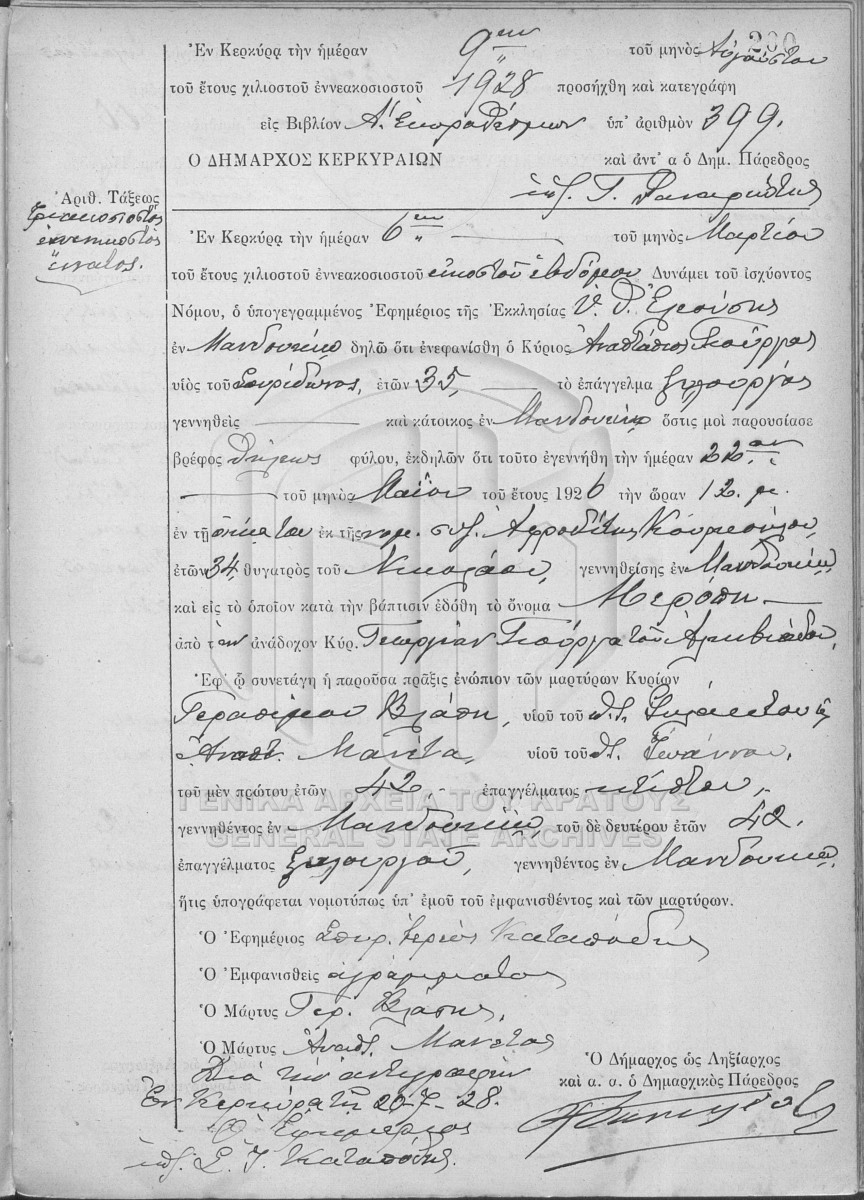 200
Ἐν Κερκύρᾳ τὴν ἡμέραν 9ην τοῦ μηνὸς Αὐγούστου
τοῦ ἔτους χιλιοστοῦ ἐννεακοσιοστοῦ 1928 προσήχθη καὶ κατεγράφη
εἰς Βιβλίον Α. Ἐκπροθέσμων ὑπ' ἀριθμὸν 399.
Ο ΔΗΜΑΡΧΟΣ ΚΕΡΚΥΡΑΙΩΝ καὶ ἀντ' α ὁ Δημ. Πάρεδρος
ὑπ. Γ.
Ἀριθ. Τάξεως
Τριακοσιοστὸς
ἐννενηκοστὸς
ἔννατος.
Ἐν Κερκύρᾳ τὴν ἡμέραν 6ην τοῦ μηνὸς Μαρτίου
τοῦ ἔτους χιλιοστοῦ ἐννεακοσιοστοῦ εἰκοστοῦ ἑβδόμου Δυνάμει τοῦ ἰσχύοντος
Νόμου, ὁ ὑπογεγραμμένος Ἐφημέριος τῆς Ἐκκλησίας Ὑ. Θ. Ἐλεούσης
ἐν Μανδουκίῳ δηλῶ ὅτι ἐνεφανίσθη ὁ Κύριος Ἀναστάσιος Γεούργας
υἱὸς τοῦ Σπυρίδωνος, ἐτῶν 35, τὸ ἐπάγγελμα ξυλουργὸς
γεννηθεὶς καὶ κάτοικος ἐν Μανδουκίῳ ὅστις μοὶ παρουσίασε
βρέφος θήλεως φύλου, ἐκδηλῶν ὅτι τοῦτο ἐγεννήθη τὴν ἡμέραν 22αν
τοῦ μηνὸς Μαΐου τοῦ ἔτους 1926 τὴν ὥραν 12. μ.
ἐν τῇ οἰκίᾳ του ἐκ τῆς νομ. συζ. Ἀφροδίτης Κουρκούλου,
ἐτῶν 34, θυγατρὸς τοῦ Νικολάου, γεννηθείσης ἐν Μανδουκίῳ
καὶ εἰς τὸ ὁποῖον κατὰ τὴν βάπτισιν ἐδόθη τὸ ὄνομα Μερόπη
ἀπὸ τὴν ἀνάδοχον Κύρ. Γεωργίαν Γεούργα τοῦ Ἀλκιβιάδου,
Ἐφ' ᾧ συνετάγη ἡ παροῦσα πρᾶξις ἐνώπιον τῶν μαρτύρων Κυρίων
Γερασίμου Βλάση, υἱοῦ τοῦ
Ἀναστ. Μανέτα, υἱοῦ τοῦ Ἰωάννου.
τοῦ μὲν πρώτου ἐτῶν 42, ἐπαγγέλματος κτίστου,
γεννηθέντος ἐν Μανδουκίῳ, τοῦ δὲ δευτέρου ἐτῶν 42.
ἐπαγγέλματος ξυλουργοῦ, γεννηθέντος ἐν Μανδουκίῳ,
ἥτις ὑπογράφεται νομοτύπως ὑπ' ἐμοῦ τοῦ ἐμφανισθέντος καὶ τῶν μαρτύρων.
Ὁ Ἐφημέριος Σπυρ. ἱερεὺς Καταπόδης
Ὁ Ἐμφανισθεὶς ἀγράμματος
Ὁ Μάρτυς Γερ. Βλάσης,
Ὁ Μάρτυς Ἀναστ. Μανέτας
Διὰ τὴν ἀντιγραφὴν
Ἐν Κερκύρᾳ τῇ 20-7-28.
Ὁ Ἐφημέριος
ὑπ. Σ. Ἰ. Καταπόδης.
Ὁ Δήμαρχος ὡς Ληξίαρχος
καὶ α. α. ὁ Δημαρχικὸς Πάρεδρος
ΓΕΝΙΚΑ ΑΡΧΕΙΑ ΤΟΥ ΚΡΑΤΟΥΣ
GENERAL STATE ARCHIVES